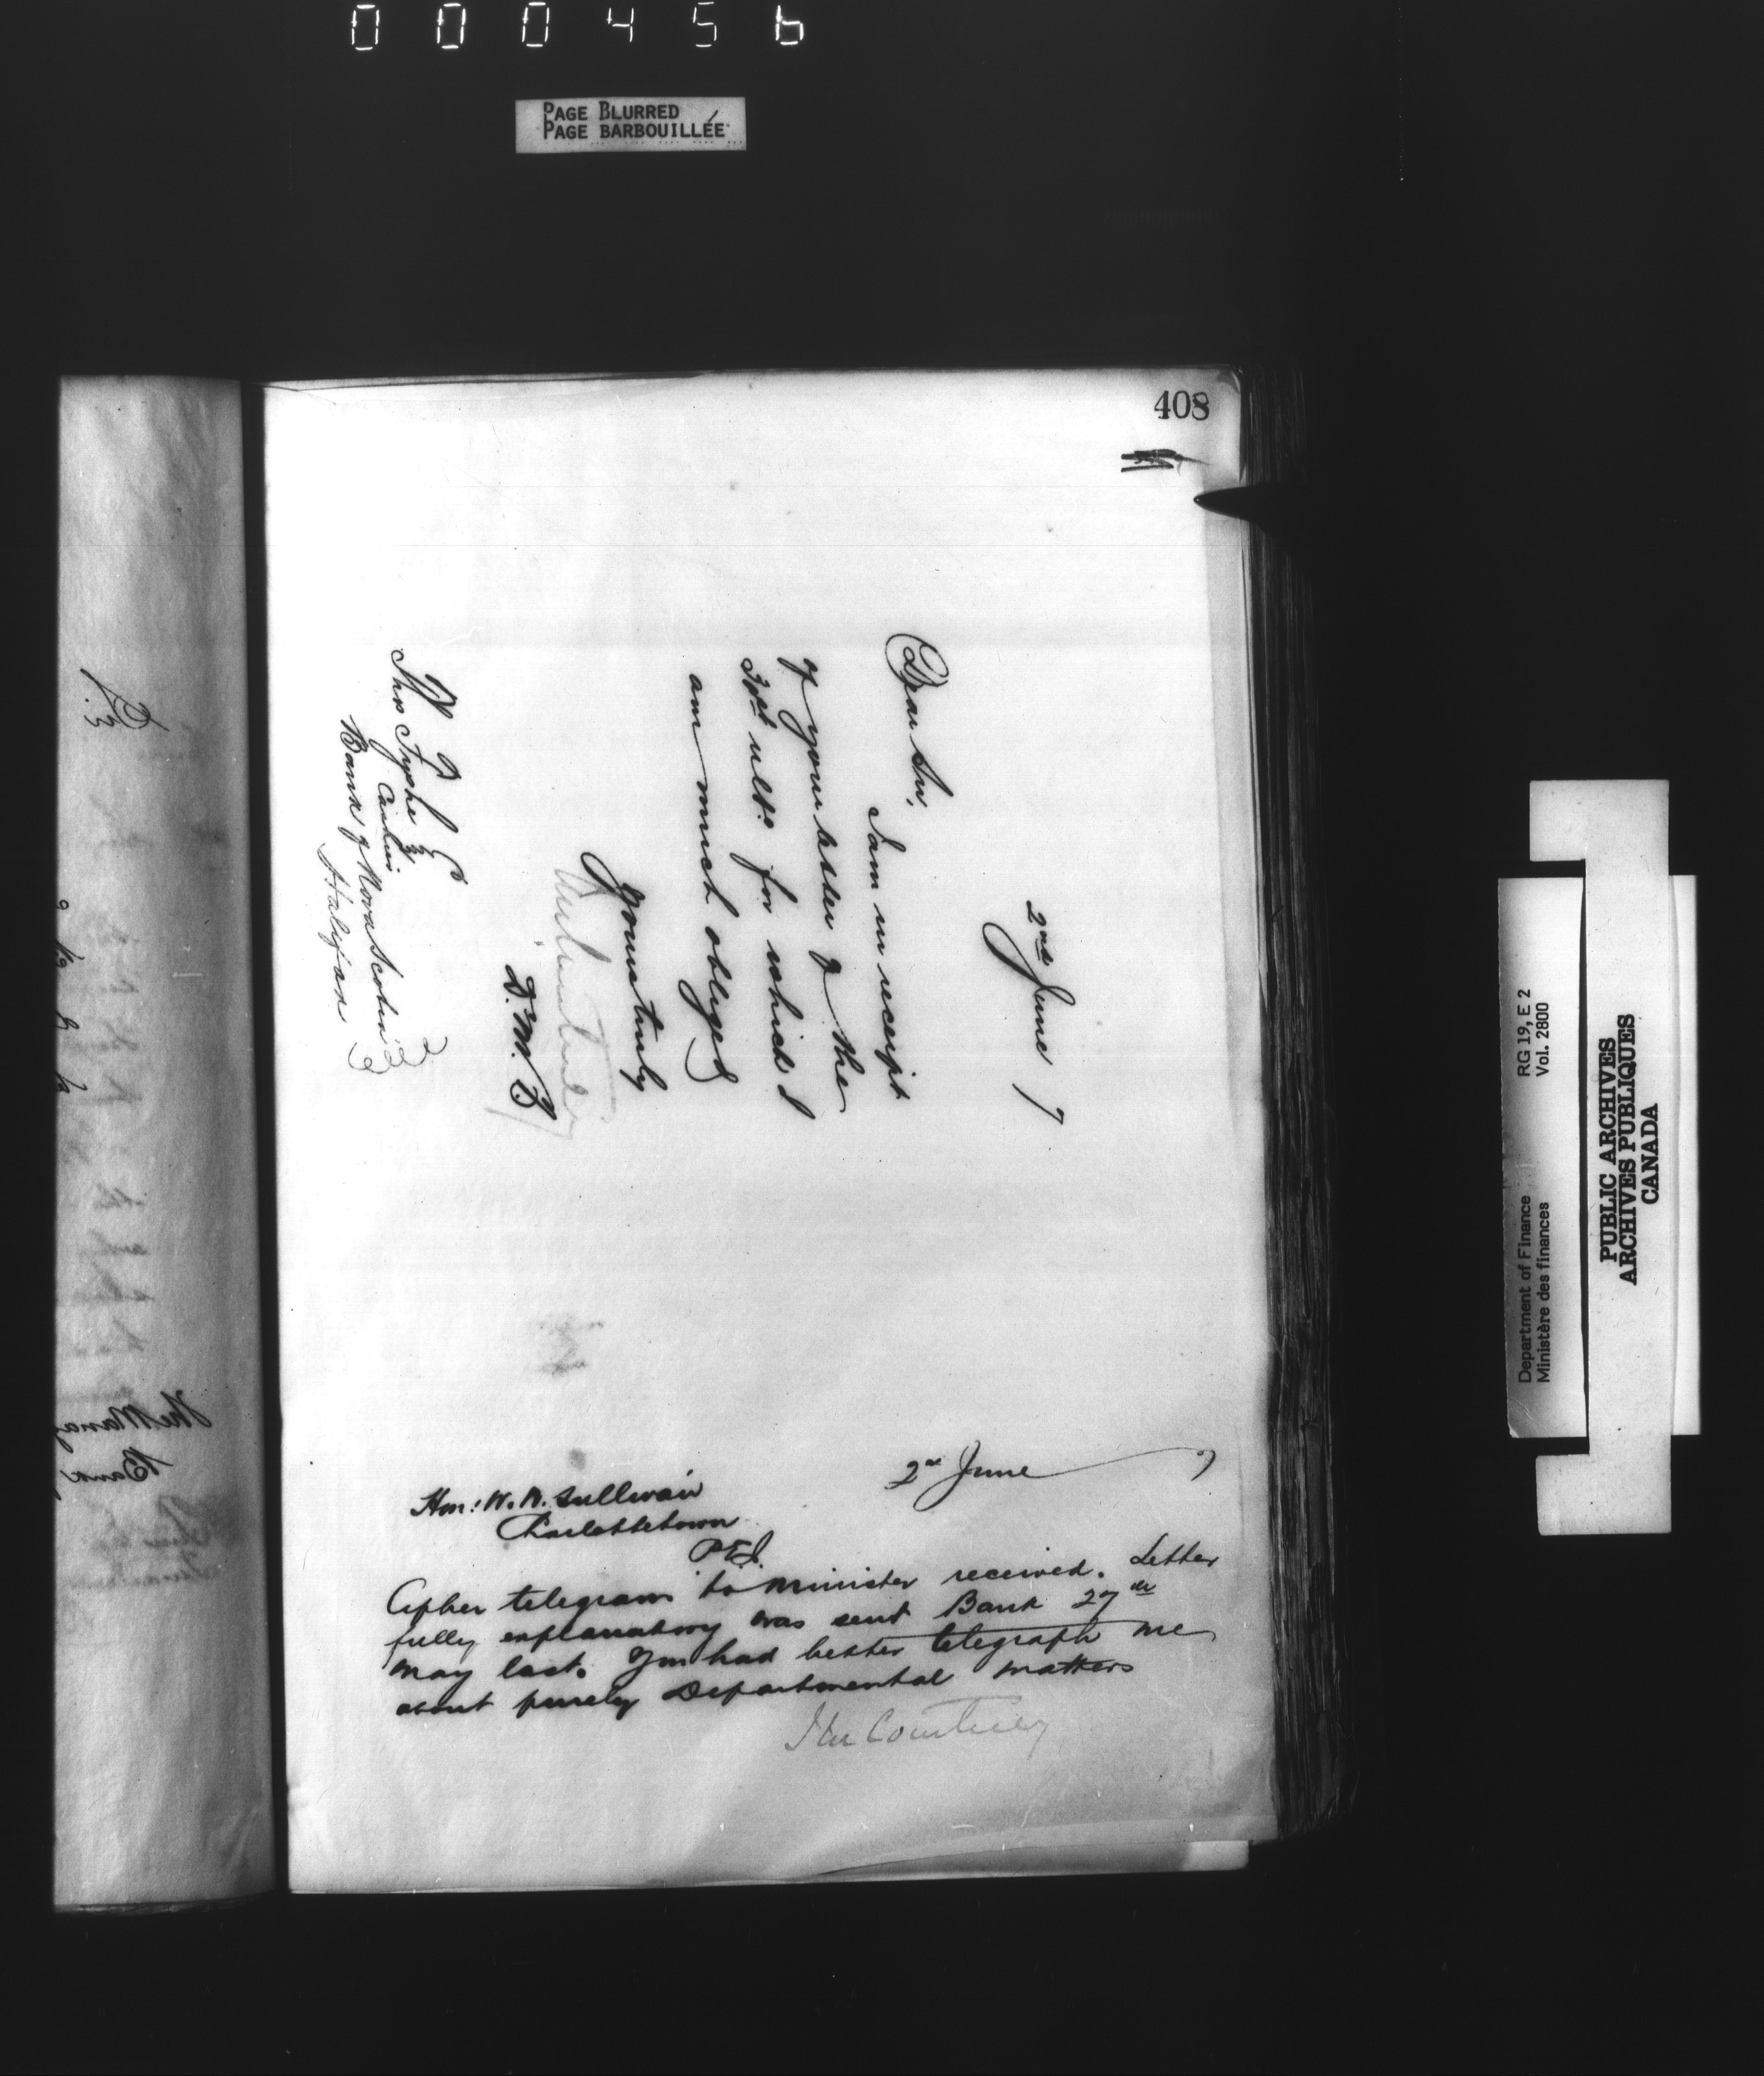 000456
PAGE BLURRED
PAGE BARBOUILLÉE
408
2nd June 7
Dear Sir,
I am in receipt
of your letter of the
ulto. for which I
am much obliged
Yours truly
D.M.F.
Thos Fyshe Esq
Cashier
Bank of Nova Scotia
Halifax
2nd June 7
Hon: W. W. Sullivan
Charlottetown
P.E.I.
Cipher telegram to Minister received. Letter
fully explanatory was sent Bank 27th
May last. You had better telegraph me
about purely Departmental matters
J M Courtney
The Manag
Bank
Department of Finance RG 19, E 2
Ministère des finances Vol. 2800
PUBLIC ARCHIVES
ARCHIVES PUBLIQUES
CANADA